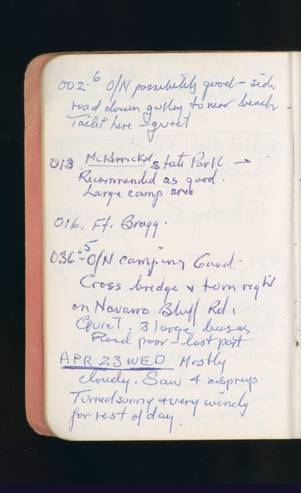 002.6 O/N possibility good - side
road down gulley to near beach
Toilet here - quiet
013 McKerricher State Park -
Recommended as good.
Large camp area
016. Ft. Bragg.
036.5 O/N camping Good.
Cross bridge & turn right
on Navarro Bluff Rd.
Quiet. 3 large buses
Road poor - last part
APR 23 WED Mostly
cloudy. Saw 4 ospreys
Turned sunny & very windy
for rest of day.